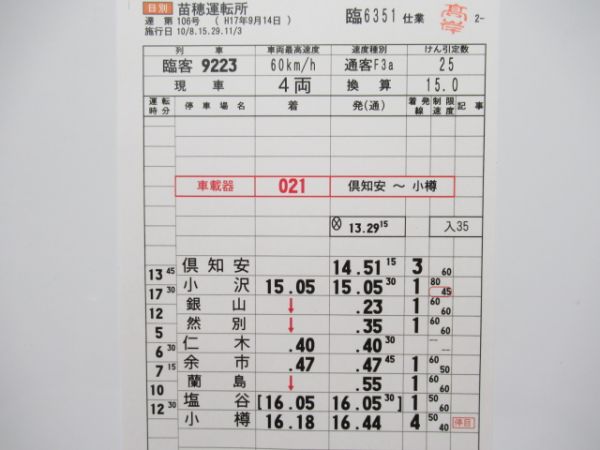 日別 苗穂運転所 臨6351 仕業 髙岸 2-
達 第 106号 ( H17年9月14日 )
施行日 10/8.15.29.11/3
列車 車両最高速度 速度種別 けん引定数
臨客 9223 60km/h 通客F3a 25
現車 4両 換算 15.0
運転時分 停車場名 着 発(通) 着発線 制限速度 記事
車載器 021 倶知安 ～ 小樽
ⓧ 13.29 15 入35
倶知安 14.51 15 3 60
13 45
小沢 15.05 15.05 30 1 80 45
17 30
銀山 ↓ .23 1 60 60
12
然別 ↓ .35 1 60 60
5
仁木 .40 .40 30 -- --
6 30
余市 .47 .47 45 1 60 50
7 15
蘭島 ↓ .55 1 60 60
10
塩谷 [16.05 16.05 30] 1 50 60
12 30
小樽 16.18 16.44 4 50 40 停目